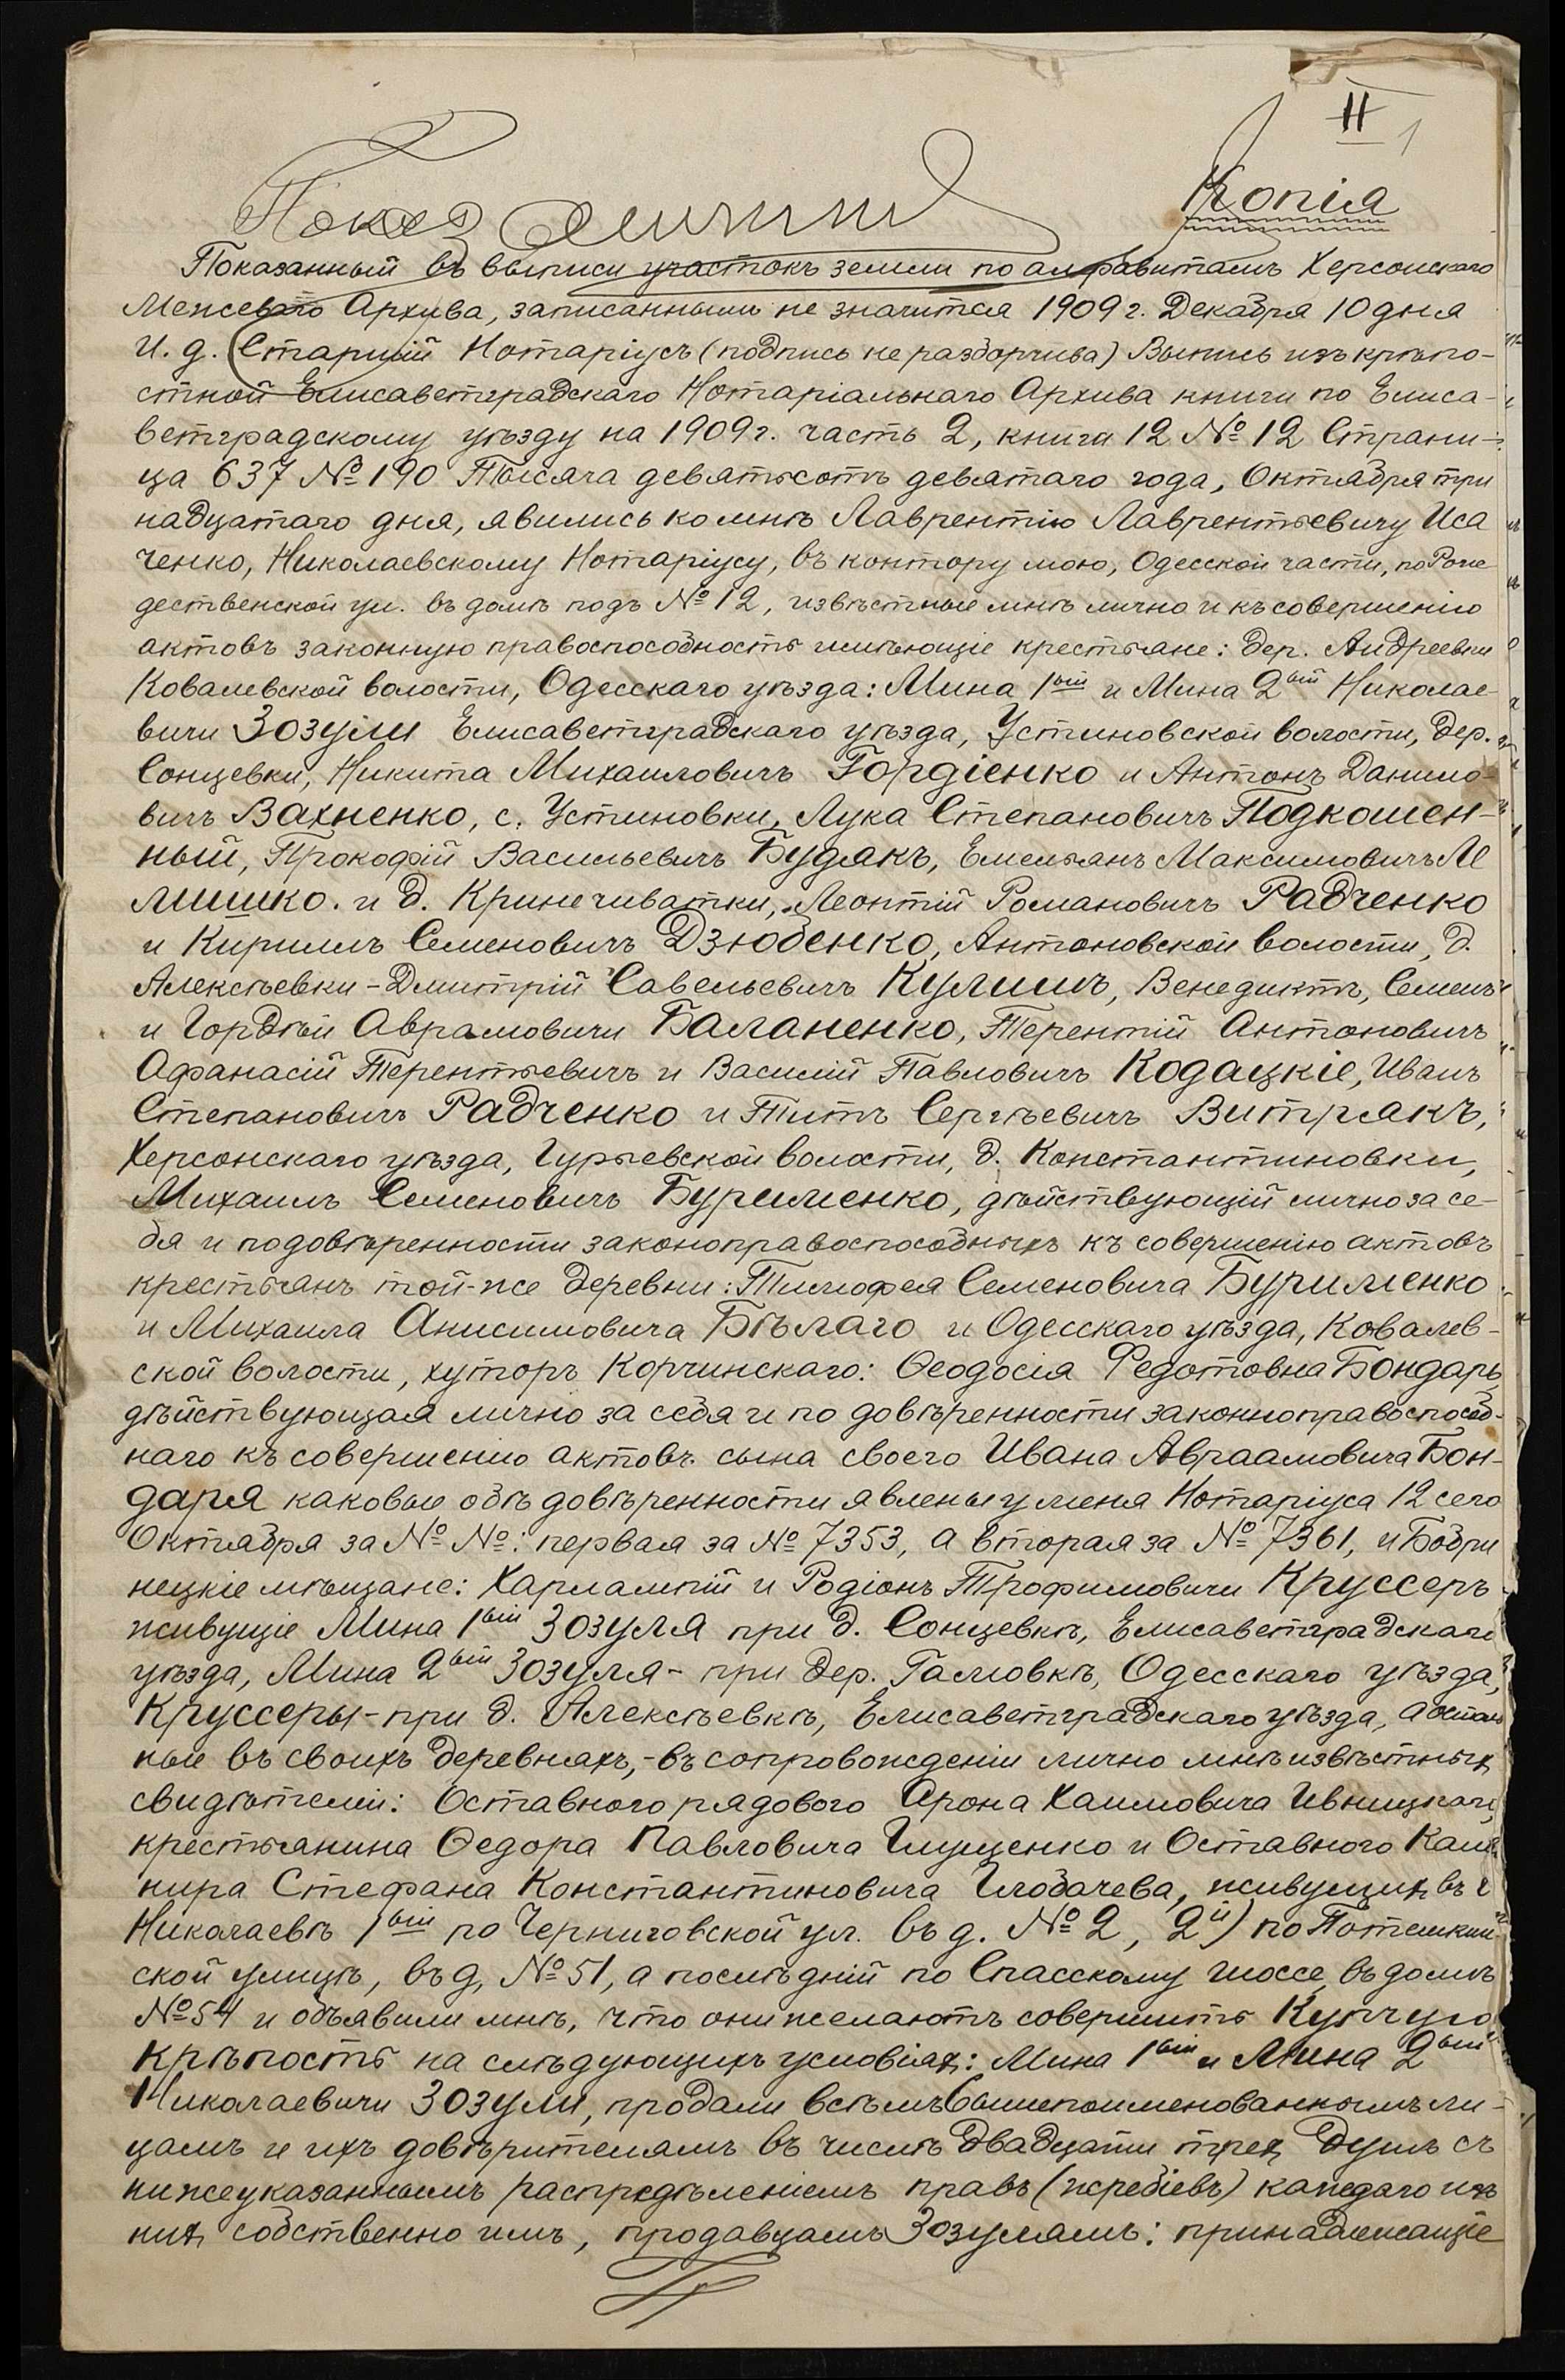 II 1
Копія
Показанный въ выписи участокъ земли по алфавитамъ Херсонскаго
Межеваго Архива, записаннымъ не значится 1909 г. Декабря 10 дня
И. д. Старшій Нотаріусъ (подпись не разборчива) Выпись изъ крѣпо-
стной Елисаветградскаго Нотаріальнаго Архива книги по Елиса-
ветградскому уѣзду на 1909 г. часть 2, книга 12 № 12 Страни-
ца 637 № 190 Тысяча девятьсотъ девятаго года, Октября три
надцатаго дня, явились ко мнѣ Лаврентію Лаврентьевичу Иса
ченко, Николаевскому Нотаріусу, въ контору мою, Одесской части, по Рож
дественской ул. въ домѣ подъ № 12, извѣстные мнѣ лично и къ совершенію
актовъ законную правоспособность имѣющіе крестьяне: дер. Андреевки
Ковалевской волости, Одесскаго уѣзда: Мина 1ый и Мина 2ый Николае-
вичи Зозули Елисаветградскаго уѣзда, Устиновской волости, дер.
Сонцевки, Никита Михаиловичъ Гордіенко и Антонъ Данило-
вичъ Вахненко, с. Устиновки, Лука Степановичъ Подкошен-
ный, Прокофій Васильевичъ Будякъ, Емельянъ Максимовичъ
и д. Криничеватки, Леонтій Романовичъ Радченко
и Кириллъ Семеновичъ Дзюбенко, Антоновской волости, д.
Алексѣевки - Дмитрій Савельевичъ Кулишъ, Венедиктъ, Семенъ
и Гордѣй Аврамовичи Баланенко, Терентій Антоновичъ
Афанасій Терентьевичъ и Василій Павловичъ Кодацкіе, Иванъ
Степановичъ Радченко и Титъ Сергѣевичъ Витрякъ,
Херсонскаго уѣзда, Гурьевской волости, д. Константиновки,
Михаилъ Семеновичъ Бурименко, дѣйствующій лично за се-
бя и по довѣренности законоправоспособныхъ къ совершенію актовъ
крестьянъ той-же деревни: Тимофея Семеновича Бурименко
и Михаила Анисимовича Бѣлаго и Одесскаго уѣзда, Ковалев-
ской волости, хуторъ Корчинскаго: Ѳеодосія Федотовна Бондарь,
дѣйствующая лично за себя и по довѣренности законноправоспособ-
наго къ совершенію актовъ сына своего Ивана Авраамовича Бон-
даря каковые обѣ довѣренности явлены у меня Нотаріуса 12 сего
Октября за № №: первая за № 7353, а вторая за № 7361, и Бобри
нецкіе мѣщане: Харлампій и Родіонъ Трофимовичи Круссеръ
живущіе Мина 1ый Зозуля при д. Сонцевкѣ, Елисаветградскаго
уѣзда, Мина 2ый Зозуля - при дер. Гамовкѣ, Одесскаго уѣзда,
Круссеры - при д. Алексѣевкѣ, Елисаветградскаго уѣзда, а осталь
ные въ своихъ деревняхъ, - въ сопровожденіи лично мнѣ извѣстныхъ
свидѣтелей: Оставного рядового Арона Хаимовича Ивницкаго,
крестьянина Ѳедора Павловича Глущенко и Оставного
нира Стефана Константиновича Глобачева, живущихъ въ г.
Николаевѣ 1ый по Черниговской ул. въ д. № 2, 2й) по Потемкин-
ской улицѣ, въ д, № 51, а послѣдній по Спасскому шоссе, въ домѣ
№ 54 и объявили мнѣ, что они желаютъ совершить Купчую
Крѣпость на слѣдующихъ условіях: Мина 1ый и Мина 2ый
Николаевичи Зозули, продали всѣмъ вышепоименованнымъ ли-
цамъ и ихъ довѣрителямъ въ числѣ двадцати трех душъ съ
нижеуказаннымъ распредѣленіемъ правъ (жребіевъ) каждаго изъ
них собственно имъ, продавцамъ Зозулямъ: принадлежащіе